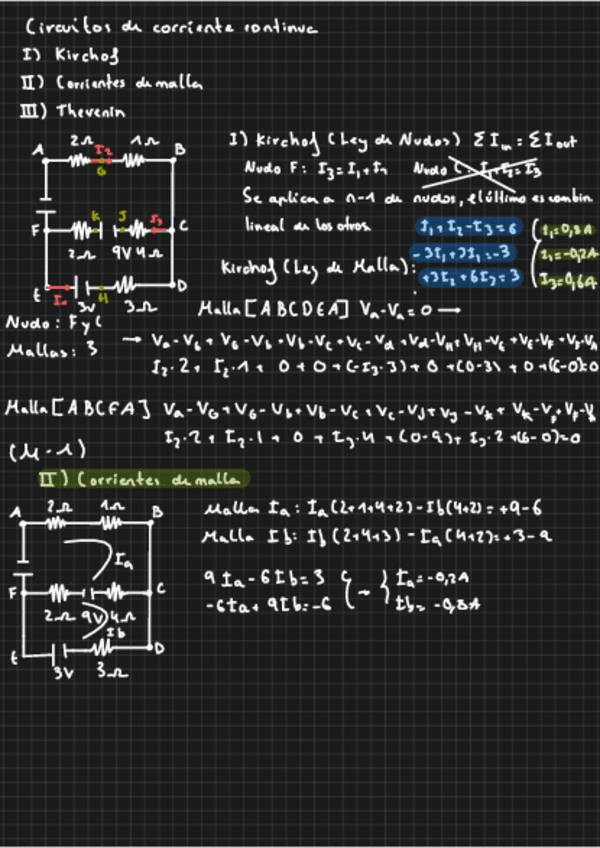 Circuitos de corriente continua
I) Kirchof
II) Corrientes de malla
III) Thevenin
2Ω 1Ω
A I2 B
G
F K J I3 C
2Ω 9V 4Ω
E I1 H D
3V 3Ω
Nudo: F y C
Mallas: 3
I) Kirchof (Ley de Nudos) Σ Iin = Σ Iout
Nudo F: I3 = I1 + I2 Nudo C: I1+I2 = I3
Se aplica a n-1 de nudos, el último es combin
lineal de los otros
Kirchof (Ley de Malla):
I1 + I2 - I3 = 6
- 3I1 + 3I2 = -3
+3I2 + 6I3 = 3
I1 = 0,8A
I2 = -0,2A
I3 = 0,6A
Malla [ABCDEA] Va - Va = 0 →
→ Va - VG + VG - Vb + Vb - Vc + Vc - Vd + Vd - VH + VH - VE + VE - VF + VF - VA
I2·2 + I2·1 + 0 + 0 + (-I1·3) + 0 + (0-3) + 0 + (6-0)=0
Malla [ABCFA] Va - VG + VG - Vb + Vb - Vc + Vc - VJ + VJ - VK + VK - VF + VF - VA
I2·2 + I2·1 + 0 + I3·4 + (0-9) + I3·2 + (6-0)=0
(M-1)
II) Corrientes de malla
2Ω 1Ω
A B
Ia
F C
2Ω 9V 4Ω
Ib
E D
3V 3Ω
Malla Ia: Ia(2+1+4+2) - Ib(4+2) = +9-6
Malla Ib: Ib(2+4+3) - Ia(4+2) = +3-9
9Ia - 6Ib = 3
-6Ia + 9Ib = -6
Ia = -0,2A
Ib = -0,8A